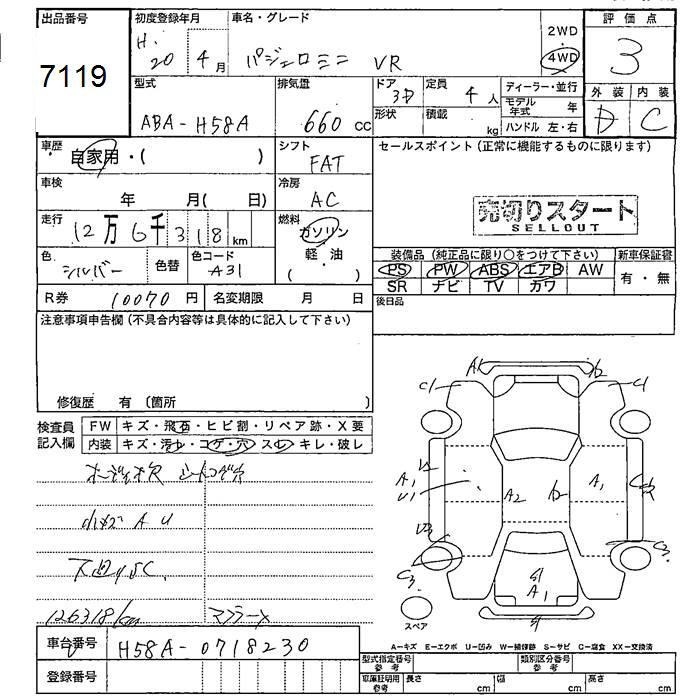 出品番号 初度登録年月 車名・グレード 評価点
7119
H. 20 4月 パジェロミニ VR 2WD 4WD 3
型式 排気量 ドア 定員 ディーラー・並行 外装 内装
ABA-H58A 660cc 3D 4人 モデル年式 年 D C
形状 積載 kg ハンドル 左・右
車歴 自家用・( ) シフト FAT セールスポイント (正常に機能するものに限ります)
車検 年 月( 日) 冷房 AC
売切りスタート
SELLOUT
走行 12万6千318km 燃料 ガソリン 軽・油 ( )
色 シルバー 色替 色コード A31
装備品 (純正品に限り○をつけて下さい) 新車保証書
PS PW ABS エアB AW 有・無
SR ナビ TV カワ
R券 10070円 名変期限 月 日 後日品
注意事項申告欄 (不具合内容等は具体的に記入して下さい)
修復歴 有 (箇所 )
検査員記入欄 FW キズ・飛石・ヒビ割・リペア跡・X要
内装 キズ・汚れ・コゲ・穴・スレ・キレ・破レ
A1
C1
A1
U1
A2
A1
C3
C3
S1
A1
スペア
126318km マフラーX
車台番号 H58A-0718230
登録番号
A-キズ E-エクボ U-凹み W-補修跡 S-サビ C-腐食 XX-交換済
型式指定番号 参考 類別区分番号 参考
車庫証明用 参考 長さ cm 幅 cm 高さ cm